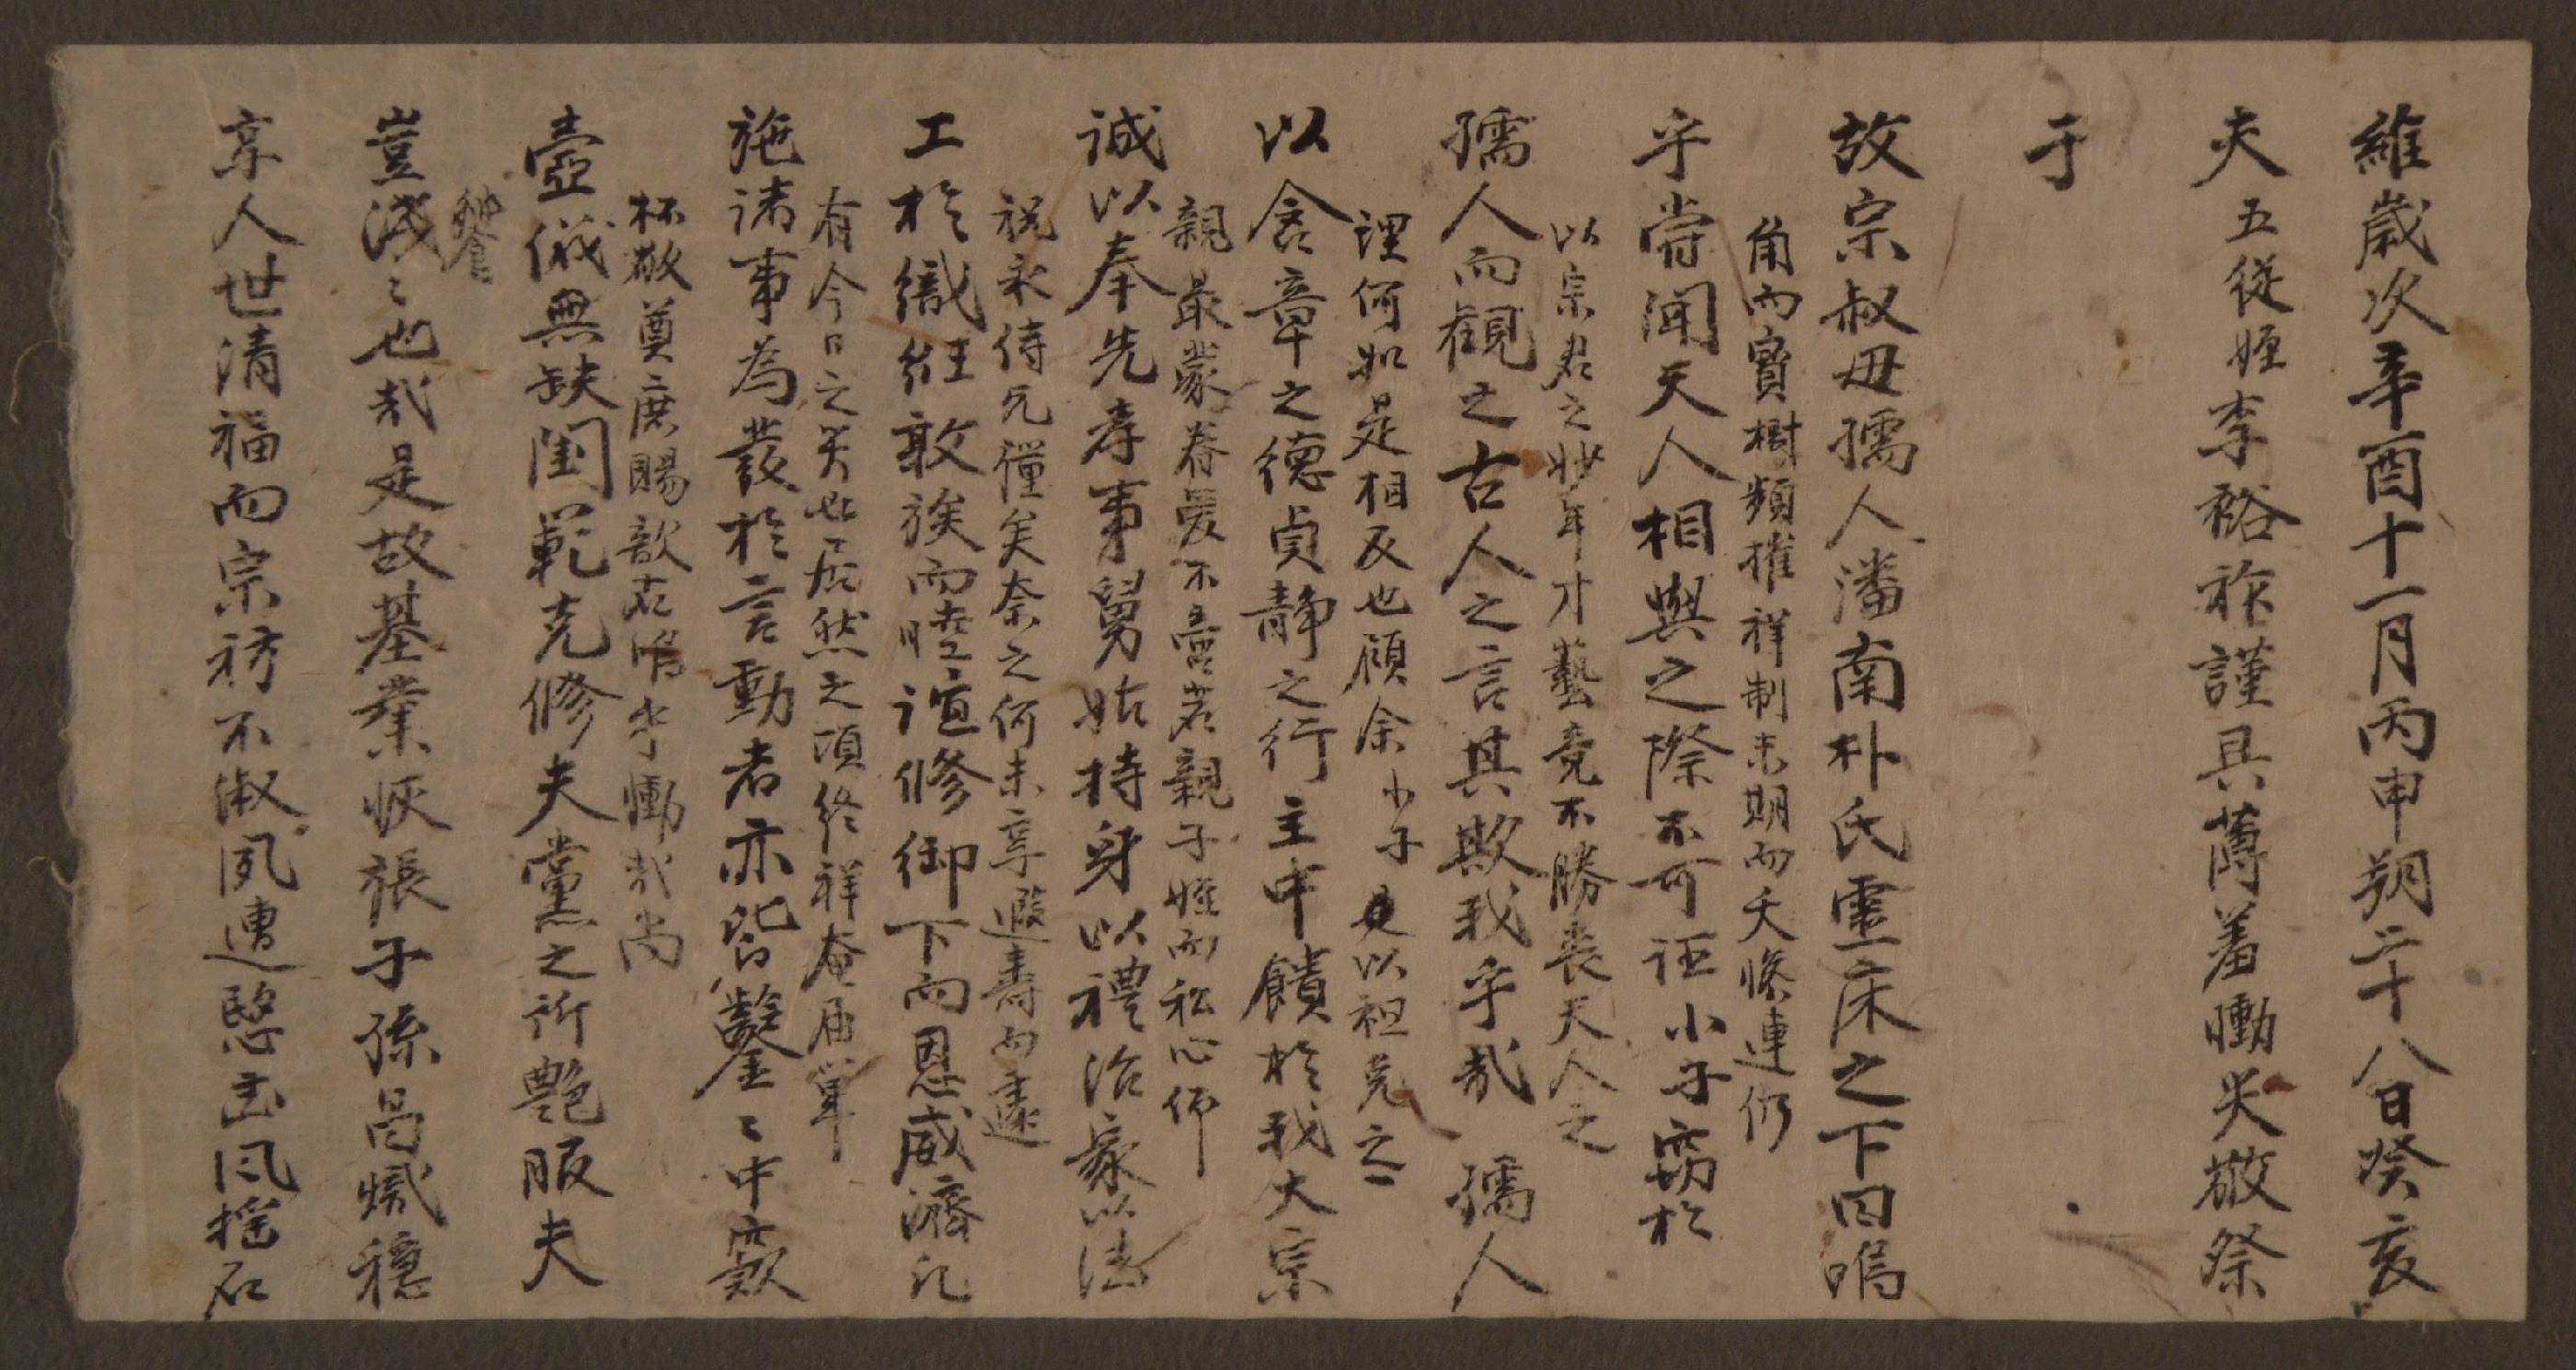 維歲次辛酉十一月丙申朔二十八日癸亥
夫五從姪李裕祚謹具薄羞慟哭敬祭
于
故宗叔母孺人潘南朴氏靈床之下曰嗚
乎嘗聞天人相與之際不可誣小子竊於
孺人而觀之古人之言其欺我乎哉 孺人
以含章之德貞静之行主中饋於我大宗
誠以奉先孝事舅姑持身以禮治家以法
工於織紝敦族而睦誼修御下而恩威濟凡
施諸事為發於言動者亦皆鑿〻中窾
壼儀無缺閨範克修夫黨之所艶服夫
豈淺〻也哉是故基業恢張子孫昌熾穩
享人世清福而宗祊不淑夙遭愍凶風搖石
角而寶樹頻摧祥制未期而夭慘連仍
以宗君之妙年才藝竟不勝喪天人之
理何如是相反也顧余小子以祖免之
親最蒙眷愛不啻若親子姪而私心仰
祝永侍矣奈之何未享遐壽而遽
有今日之哭居然之頃終祥奄届單
杯敬奠庶賜歆右嗚乎慟哉尚
饗